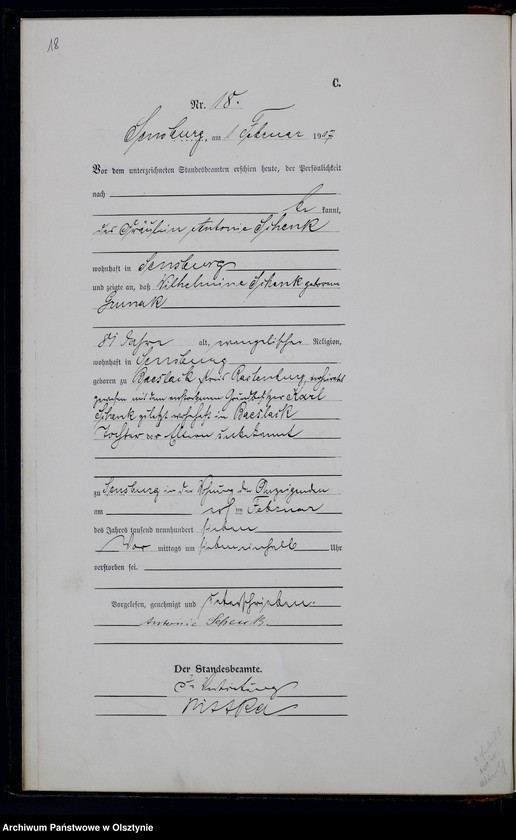 18
C.
Nr. 18.
Sensburg, am 1 Februar 1907
Vor dem unterzeichneten Standesbeamten erschien heute, der Persönlichkeit
nach
be kannt,
das Fräulein Antonie Schenk
wohnhaft in Sensburg
und zeigte an, daß Wilhelmine Schenk geborene
81 Jahre alt, evangelischer Religion,
wohnhaft in Sensburg
geboren zu Baeslack Kreis Rastenburg, verheiratet
gewesen mit dem verstorbenen Grundbesitzer Karl
Schenk zuletzt wohnhaft in Baeslack
Tochter der Eltern unbekannt
zu Sensburg in der Wohnung der Anzeigenden
am Februar
des Jahres tausend neunhundert sieben
Vor mittags um siebeneinhalb Uhr
verstorben sei.
Vorgelesen, genehmigt und unterschrieben.
Antonie Schenk
Der Standesbeamte.
In Vertretung
Archiwum Państwowe w Olsztynie